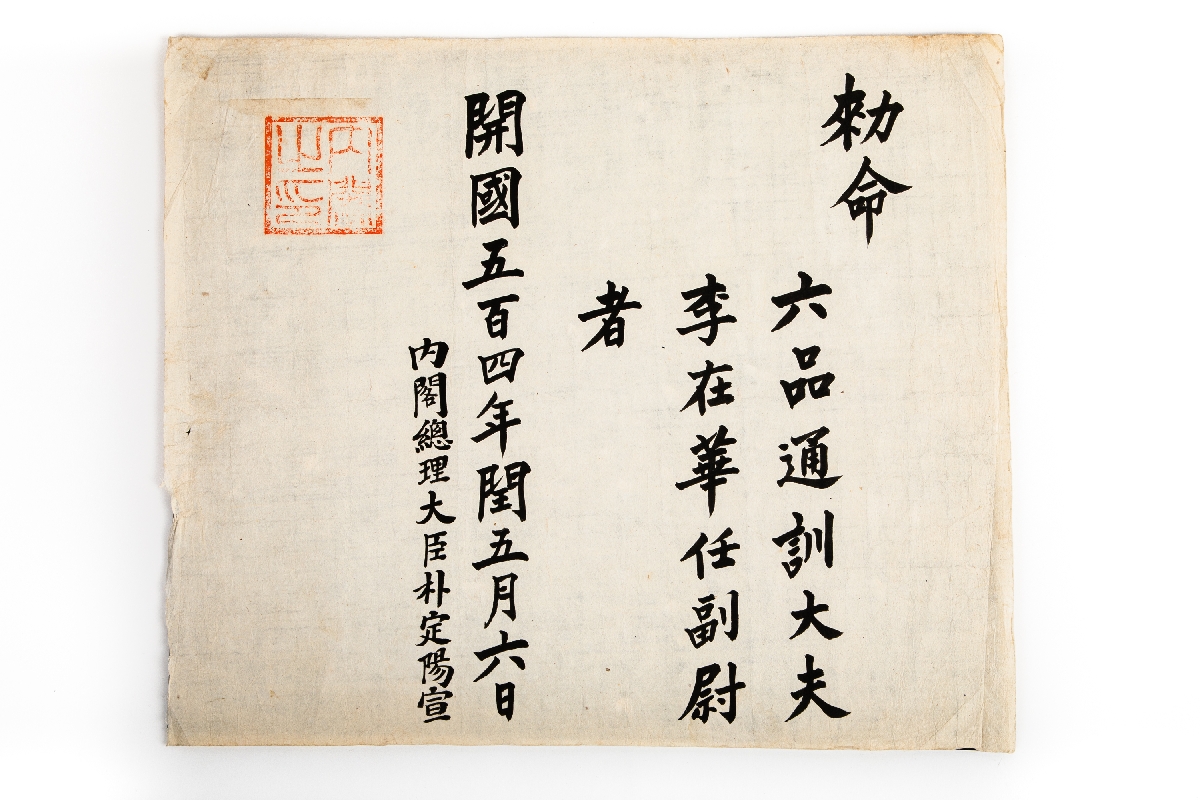 勅命
六品通訓大夫
李在華任副尉
者
開國五百四年閏五月六日
內閣總理大臣朴定陽宣
內閣之印